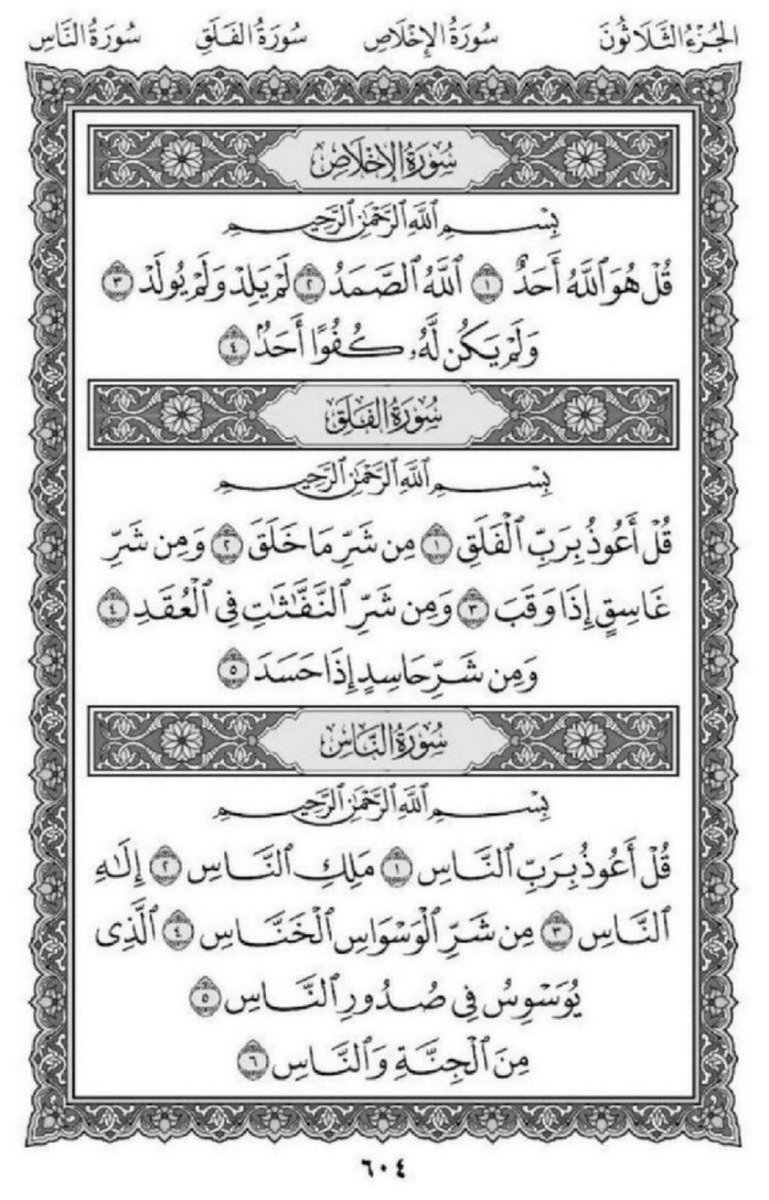 الجُزْءُ الثَّلَاثُونَ سُورَةُ الإِخْلَاصِ سُورَةُ الفَلَقِ سُورَةُ النَّاسِ
سُورَةُ الإِخْلَاصِ
بِسْمِ ٱللَّهِ ٱلرَّحْمَٰنِ ٱلرَّحِيمِ
قُلْ هُوَ ٱللَّهُ أَحَدٌ ١ ٱللَّهُ ٱلصَّمَدُ ٢ لَمْ يَلِدْ وَلَمْ يُولَدْ ٣
وَلَمْ يَكُن لَّهُۥ كُفُوًا أَحَدٌۢ ٤
سُورَةُ الفَلَقِ
بِسْمِ ٱللَّهِ ٱلرَّحْمَٰنِ ٱلرَّحِيمِ
قُلْ أَعُوذُ بِرَبِّ ٱلْفَلَقِ ١ مِن شَرِّ مَا خَلَقَ ٢ وَمِن شَرِّ
غَاسِقٍ إِذَا وَقَبَ ٣ وَمِن شَرِّ ٱلنَّفَّٰثَٰتِ فِى ٱلْعُقَدِ ٤
وَمِن شَرِّ حَاسِدٍ إِذَا حَسَدَ ٥
سُورَةُ النَّاسِ
بِسْمِ ٱللَّهِ ٱلرَّحْمَٰنِ ٱلرَّحِيمِ
قُلْ أَعُوذُ بِرَبِّ ٱلنَّاسِ ١ مَلِكِ ٱلنَّاسِ ٢ إِلَٰهِ
ٱلنَّاسِ ٣ مِن شَرِّ ٱلْوَسْوَاسِ ٱلْخَنَّاسِ ٤ ٱلَّذِى
يُوَسْوِسُ فِى صُدُورِ ٱلنَّاسِ ٥
مِنَ ٱلْجِنَّةِ وَٱلنَّاسِ ٦
٦٠٤